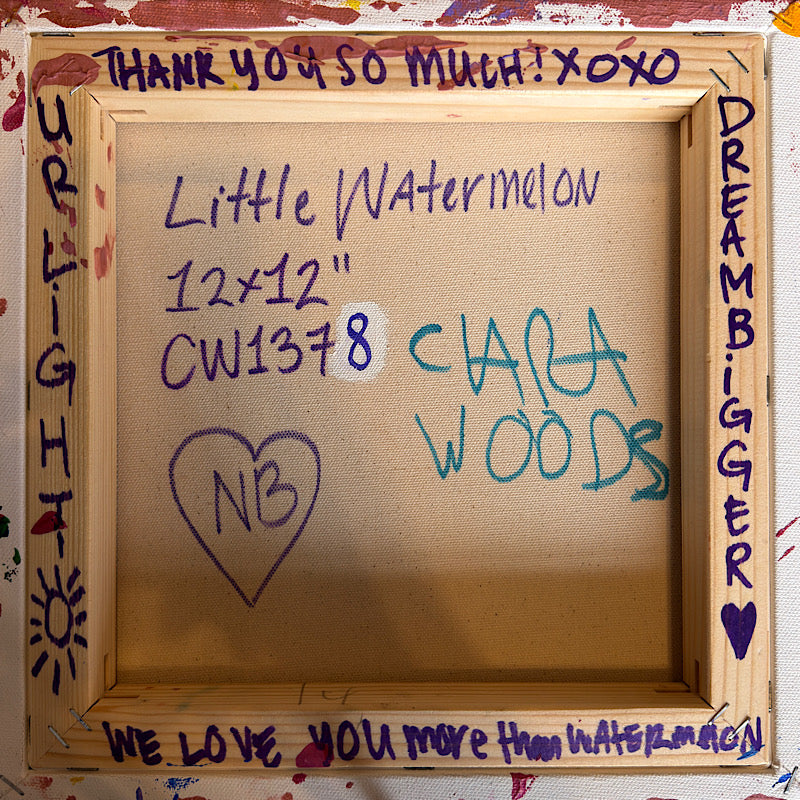 THANK YOU SO MUCH! XOXO
UR LiGHT
DREAM BiGGER
Little Watermelon
12x12"
CW1378
CLARA
WOODS
NB
WE LOVE YOU more than WATERMELON